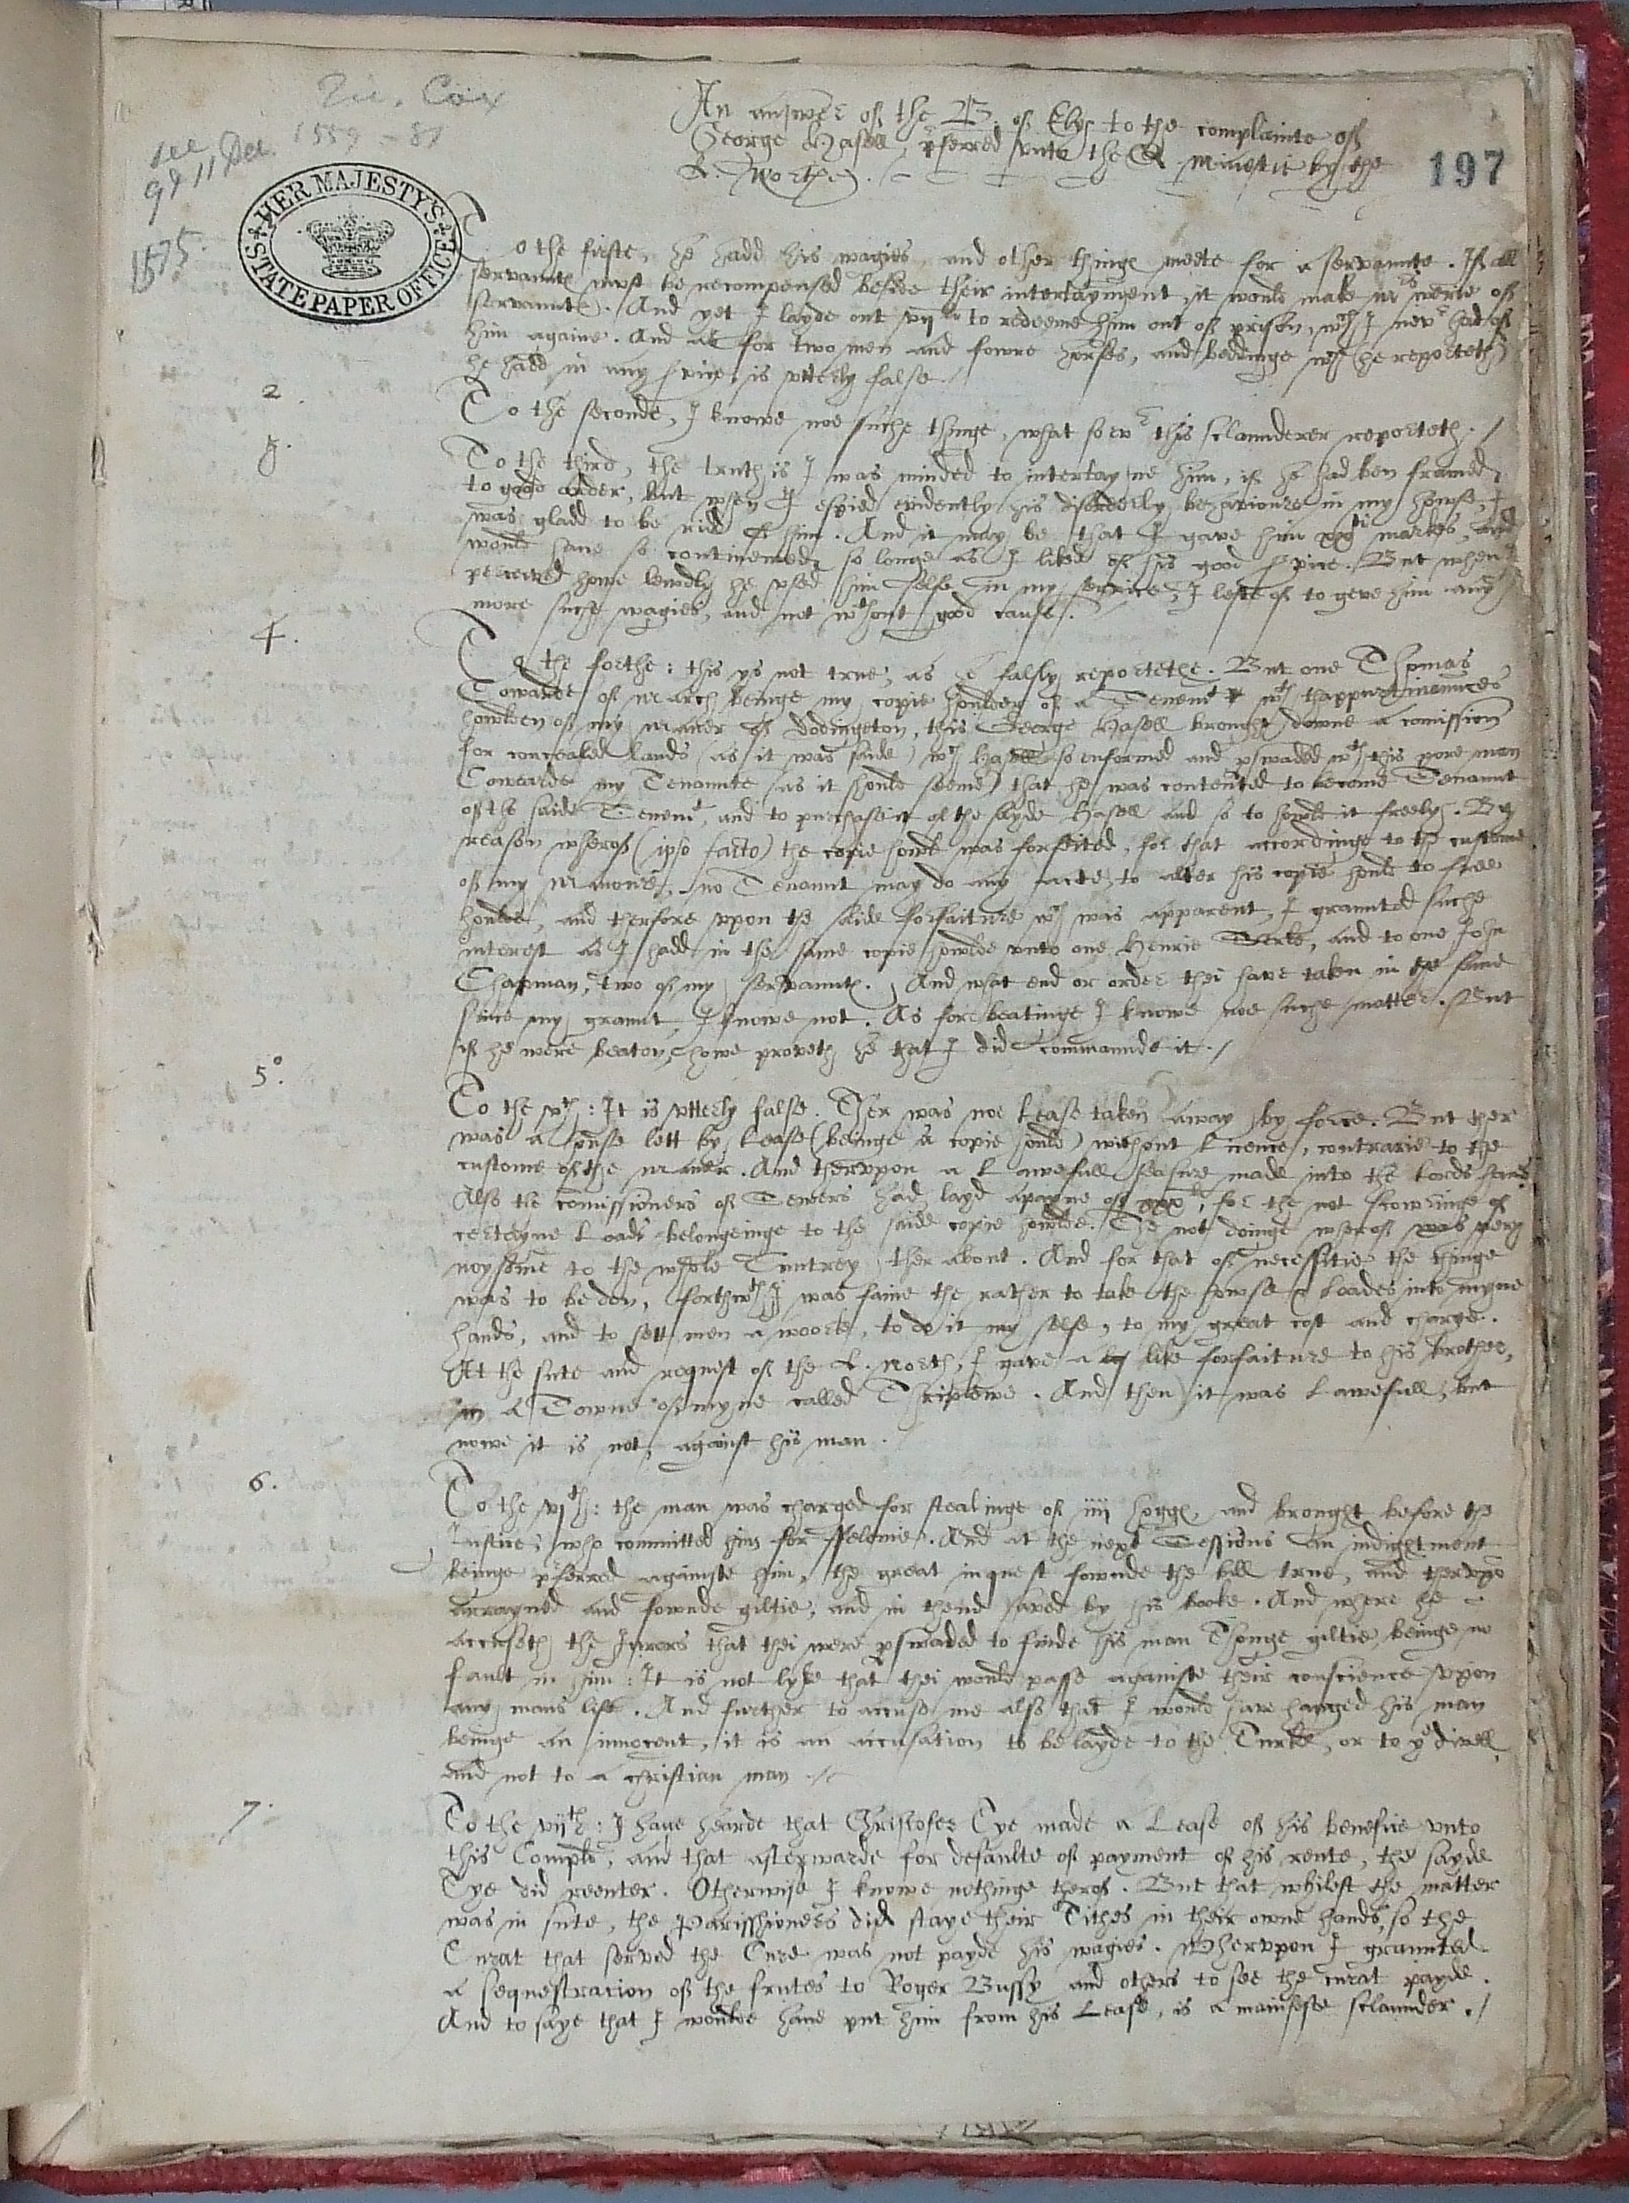 Ric. Cox
see
9 & 11 Dec. 1559 - 81
1575.
HER MAJESTY'S STATE PAPER OFFICE
197
An answer of the B. of Elye to the complainte of
George Hasell, pferred unto the Q. Maiestie by the
L. Northe.
To the firste, he hadd his wagies, and other thinges meete for a servaunte. If all
servauntes must be recompensed beside their intertaynment, it would make Mrs werie of
servauntes. And yet I layde out to redeeme him out of prison, wch I nevr had of
him againe. And as for two men and fowre horses, and beddinge wch he reporteth
he hadd in my svice, is utterly false.
2.
To the seconde, I knowe noe suche thinge, what so evr this sclaunderer reporteth. /
3.
To the third, the truth is I was minded to intertayne him, if he had ben framed
to good order, but when I espied evidently his disorderly behavioure in my howse, I
was gladd to be ridd of him. And it may be that I gave him markes, and
would have so continewed, so longe as I liked of his good svice. But when I
perceived howe lewdly he used him selfe in my service, I lefte of to geve him any
more such wagies, and not wthout good cause.
4.
To the forthe: this ys not true, as he falsly reportethe. But one Thomas
Towarde of March beinge my copie houlder of a Tenemt wth thappurtinaunces
howlden of my Maner of Dodington, this George Hasell brought downe a comission
for concealed Lands (as it was saide) wch Hasell so enformed and pswaded wth this pore man
Towarde my Tenaunte (as it should seeme) that he was contented to become Tenaunt
of the saide Tenemt, and to purchase it of the sayde Hasell and so to howld it freely. By
reason wherof (ipso facto) the copie howld was forfeited, for that accordinge to the custome
of my Manour, no Tenaunt may do any acte, to alter his copie hould to free
houlde, and therfore uppon the saide forfaiture wch was apparent, I graunted suche
interest as I hadd in the same copie howlde unto one Henrie, and to one John
Chapman, two of my servauntes. And what end or order thei have taken in the same
since my graunt, I knowe not. As for beatinge I knowe noe suche matter. But
if he were beaten, howe proveth he that I did commaunde it. /
5o.
To the vth: It is utterly false. Ther was noe Lease taken away by force. But ther
was a house lett by Lease (beinge a copie hould) without Licence, contrarie to the
custome of the Maner. And therupon a Lawefull seasure made into the Lords hands.
Also the comissioners of Sewers had layd apayne of, for the not skowringe of
certayne Loads belongeinge to the saide copie howlde. The not doinge wherof was very
noysome to the whole Cuntrey ther about. And for that of necessitie the thinge
was to be don, forthwth I was faine the rather to take the howse & Loades into myne
hands, and to sett men a woorke, to do it my selfe, to my great cost and charge.
At the sute and request of the L. North, I gave a like forfaiture to his brother,
in a Towne of myne called Thriplowe. And then it was Lawefull, but
nowe it is not, against his man.
6.
To the vjth: the man was charged for stealinge of iiij hogges, and brought before the
Justice, who committed him for ffelonie. And at the next Sessions an indightment
beinge pferred againste him, the great inquest fownde the bill true, and therupo
arrayned and fownde giltie, and in thend saved by his booke. And where he
accuseth the Jurors that thei were pswaded to finde his man Thonge giltie beinge no
fault in him: It is not lyke that thei would passe againste their conscience upon
any mans life. And further to accuse me also that I would have hanged his man
beinge an innocent, it is an accusation to be layde to the Turke, or to ye divell,
and not to a christian man. /
7.
To the vijth: I have hearde that Christofer Tye made a Lease of his benefice unto
this Complt, and that afterwarde for defaulte of payment of his rente, the sayde
Tye did reenter. Otherwise I knowe nothinge therof. But that whilest the matter
was in sute, the Parisshioners did staye their Tithes in their owne hands, so the
Curat that served the Cure was not payde his wagies. Wherupon I graunted
a sequestracion of the frutes to Roger Bussy and others to see the curat payde.
And to saye that I woulde have put him from his Lease, is a manifeste sclaunder. /